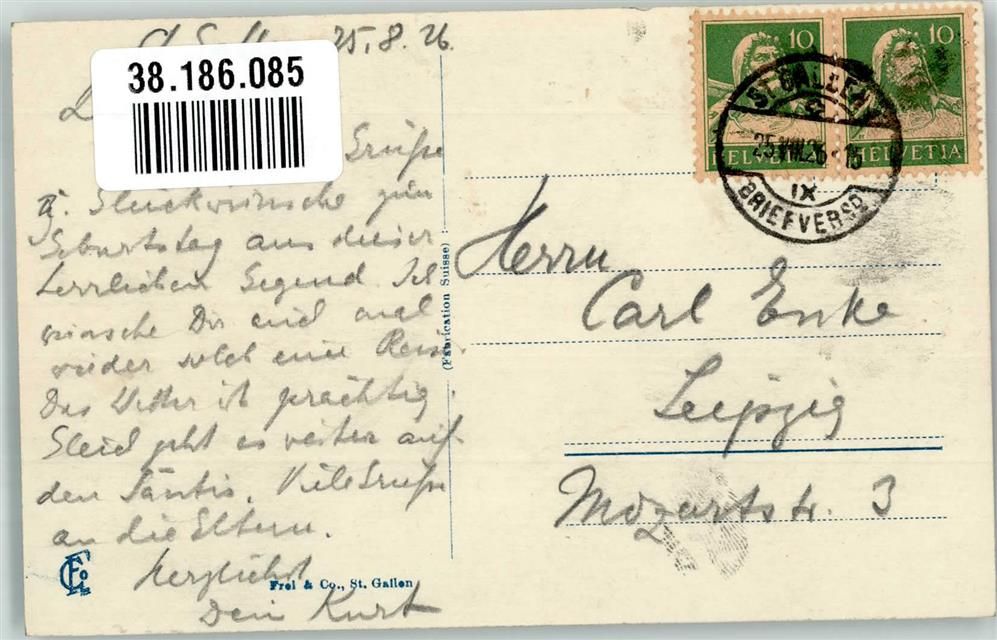 St. Gallen 25.8.26.
38.186.085
Grüße
u. Glückwünsche zum
Geburtstag aus dieser
herrlichen Gegend. Ich
wünsche Dir auch mal
wieder solch eine Reise.
Das Wetter ist prächtig.
Gleich geht es weiter auf
den Säntis. Viele Grüße
an die Eltern.
Herzlichst
Dein Kurt
Frei & Co., St. Gallen
(Fabrication Suisse)
10
10
HELVETIA
HELVETIA
ST. GALLEN
25.VIII.26-15
IX
BRIEFVERSD.
Herrn
Carl Enke
Leipzig
Mozartstr. 3